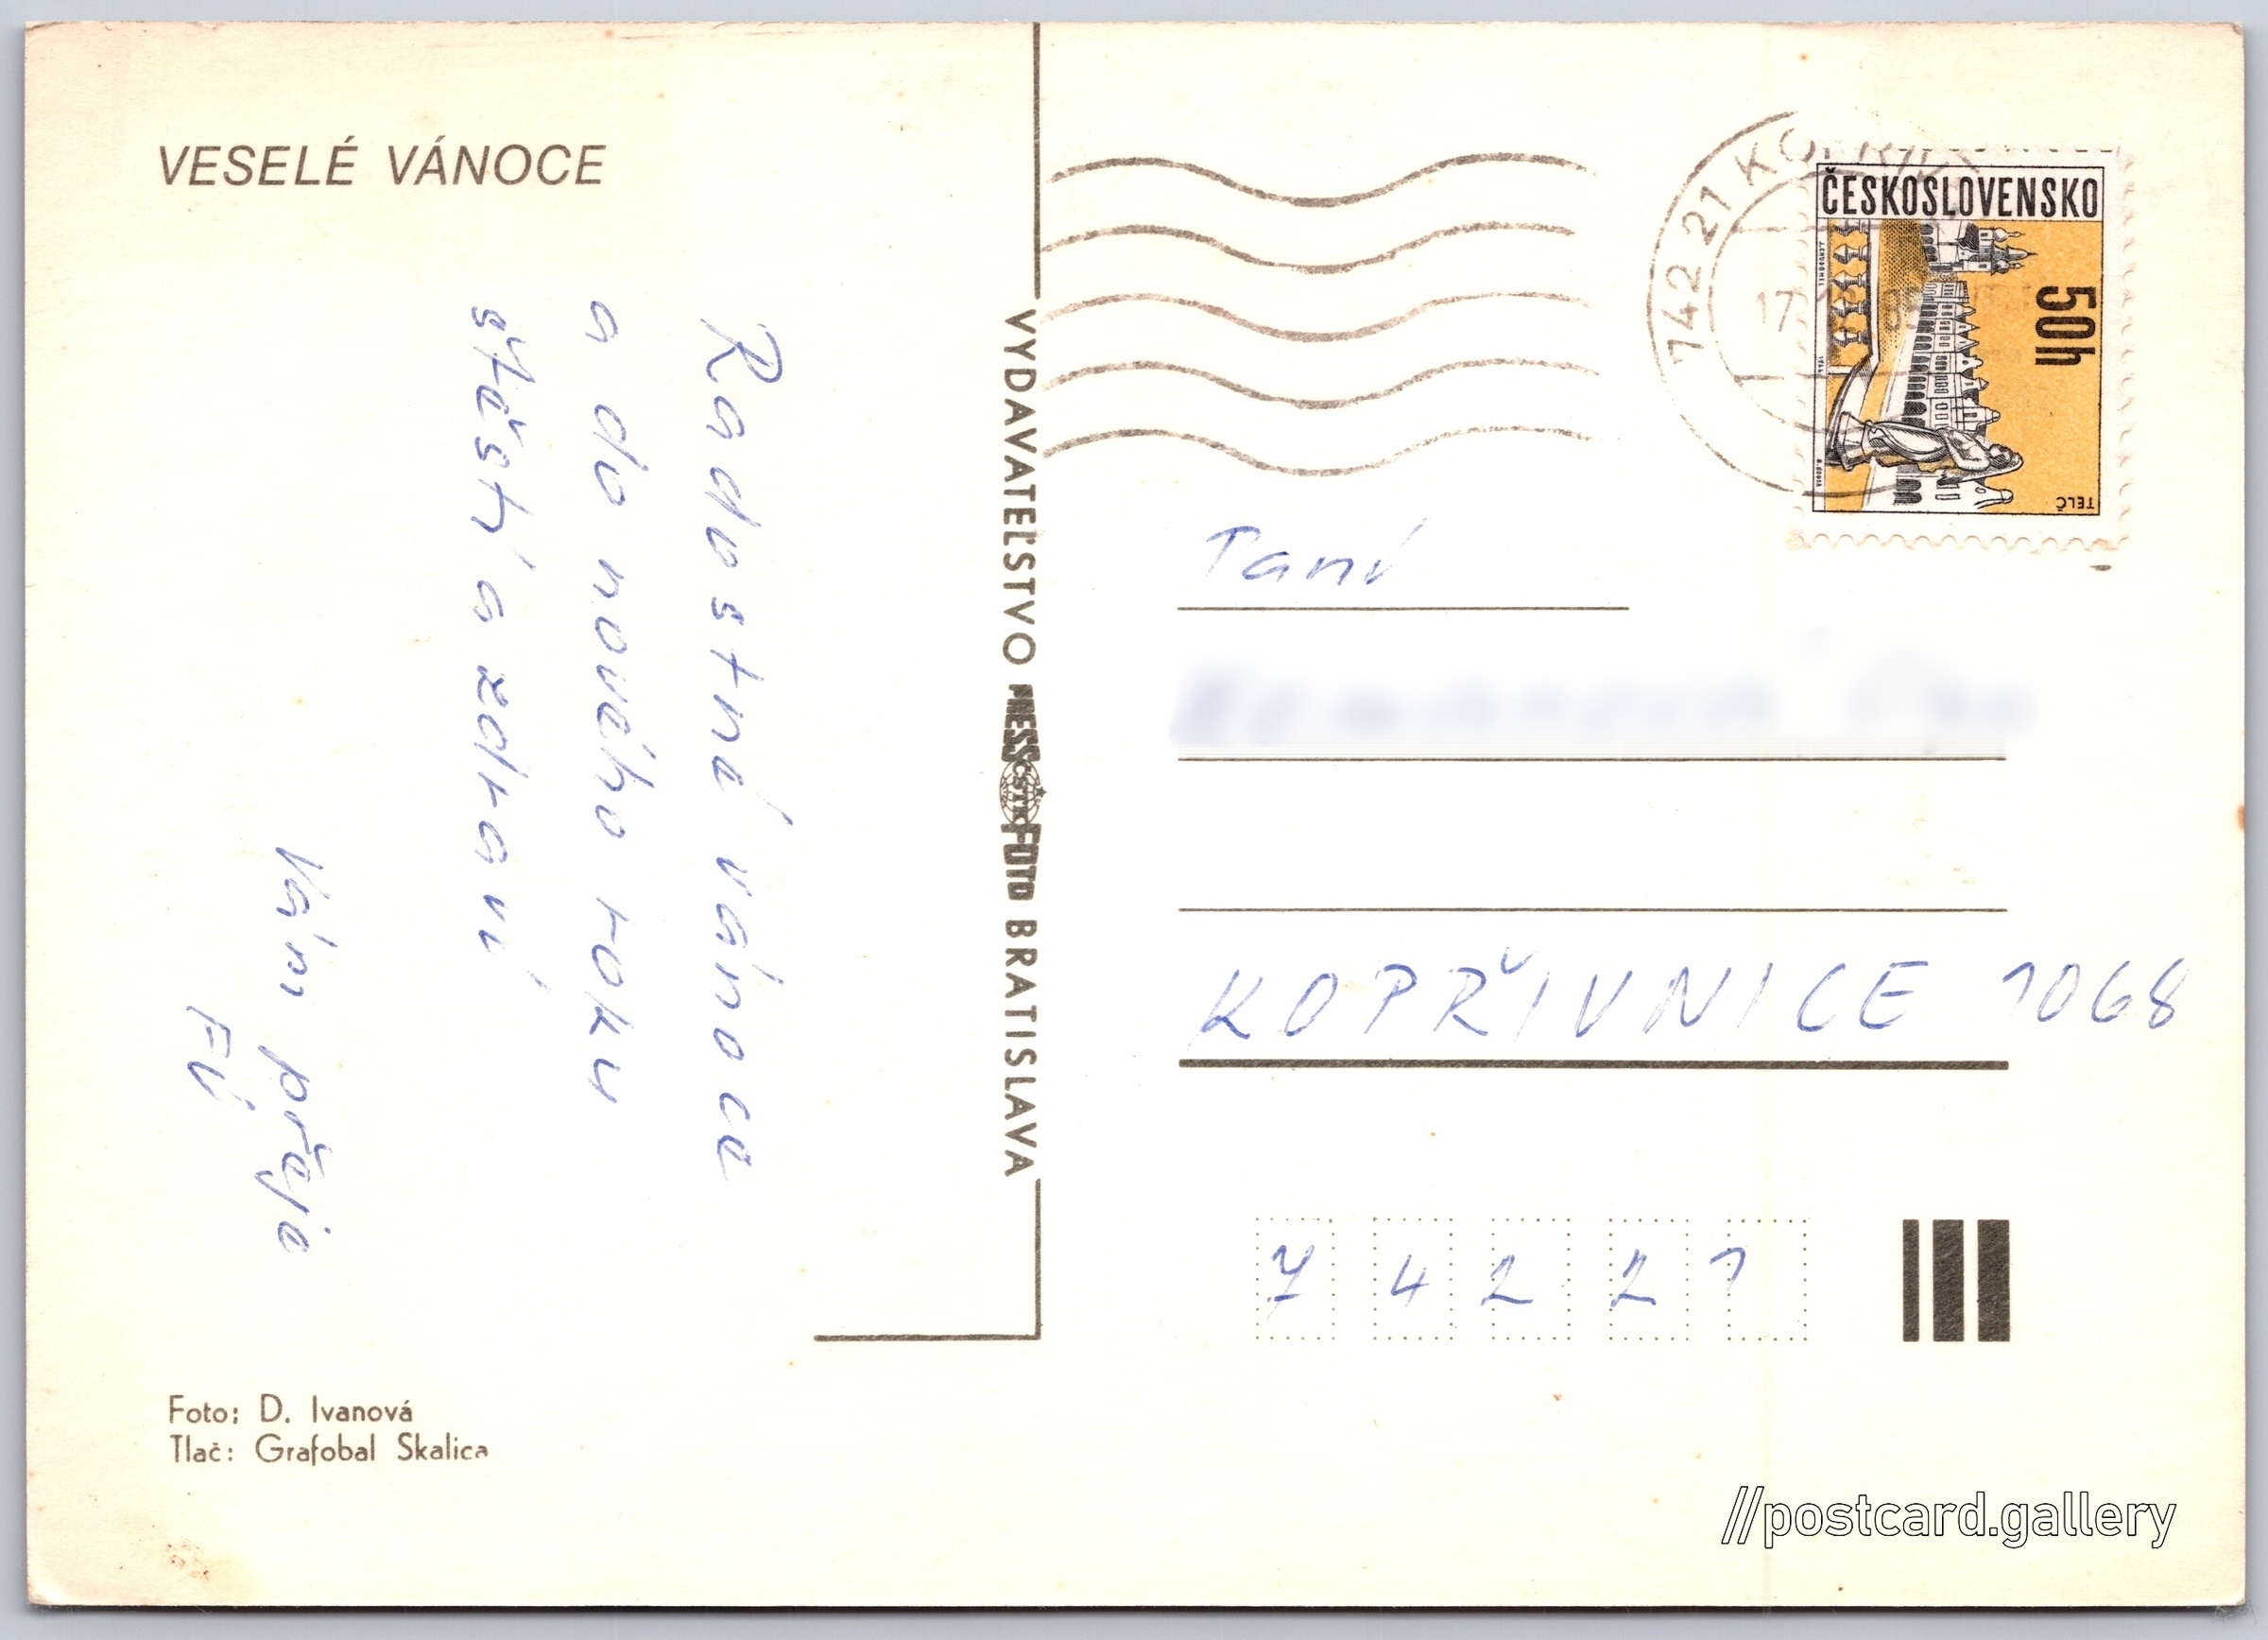 VESELÉ VÁNOCE
Radostné vánoce
a do nového roku
štěstí a zdraví
Vám přeje
FV
Foto: D. Ivanová
Tlač: Grafobal Skalica
VYDAVATEĽSTVO PRESSFOTO BRATISLAVA
ČSTK
742 21 KOPŘIV
17
ČESKOSLOVENSKO
50h
TELČ
Taní
KOPŘIVNICE 1068
7 4 2 2 1
//postcard.gallery